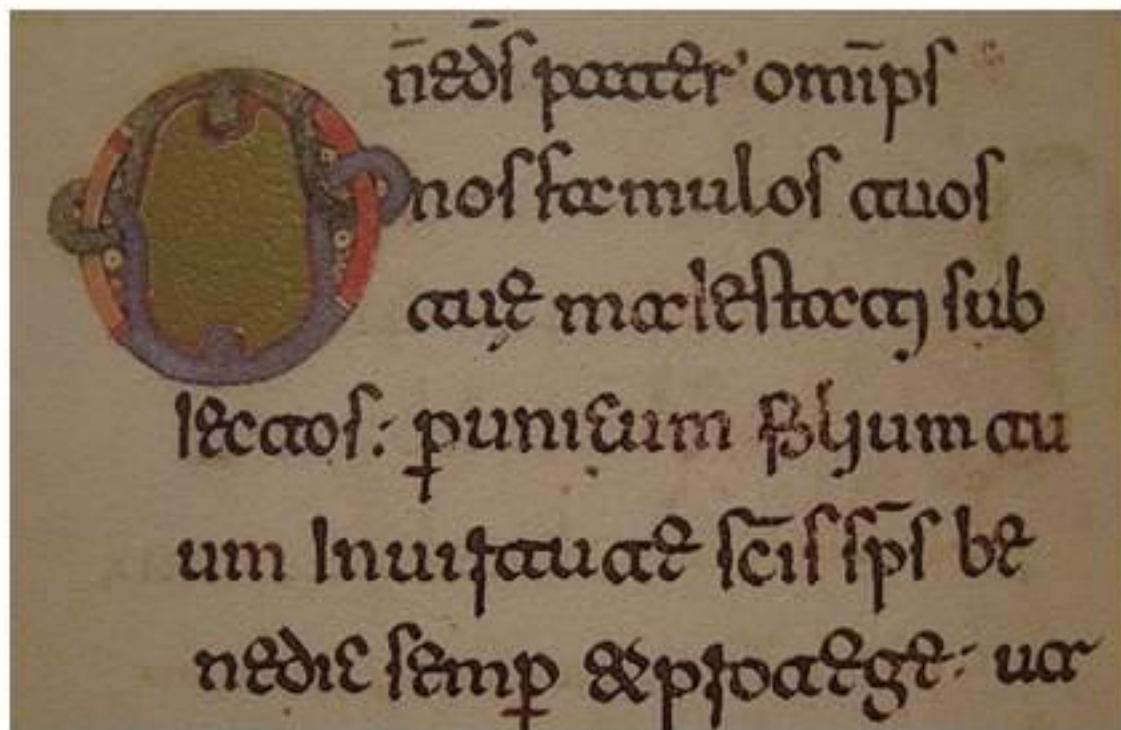 Dn̄e ds̄ pater omīps
nos famulos tuos
tuę maiestati sub
iectos: ꝑ unicum filium tu
um In uirtute sc̄is sp̄s be
nedic semꝑ & protege: ut